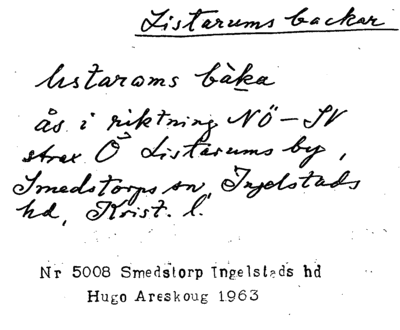 Listarums backar
listaroms bàka
ås i riktning NÖ-SV
strax Ö Listarums by,
Smedstorps sn, Ingelstads
hd, Krist. l.
Nr 5008 Smedstorp Ingelstads hd
Hugo Areskoug 1963